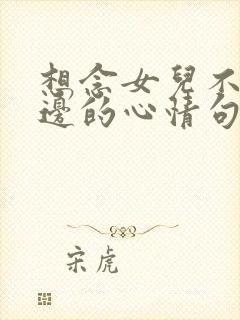 想念女兒不
邊的心情句
宋虎